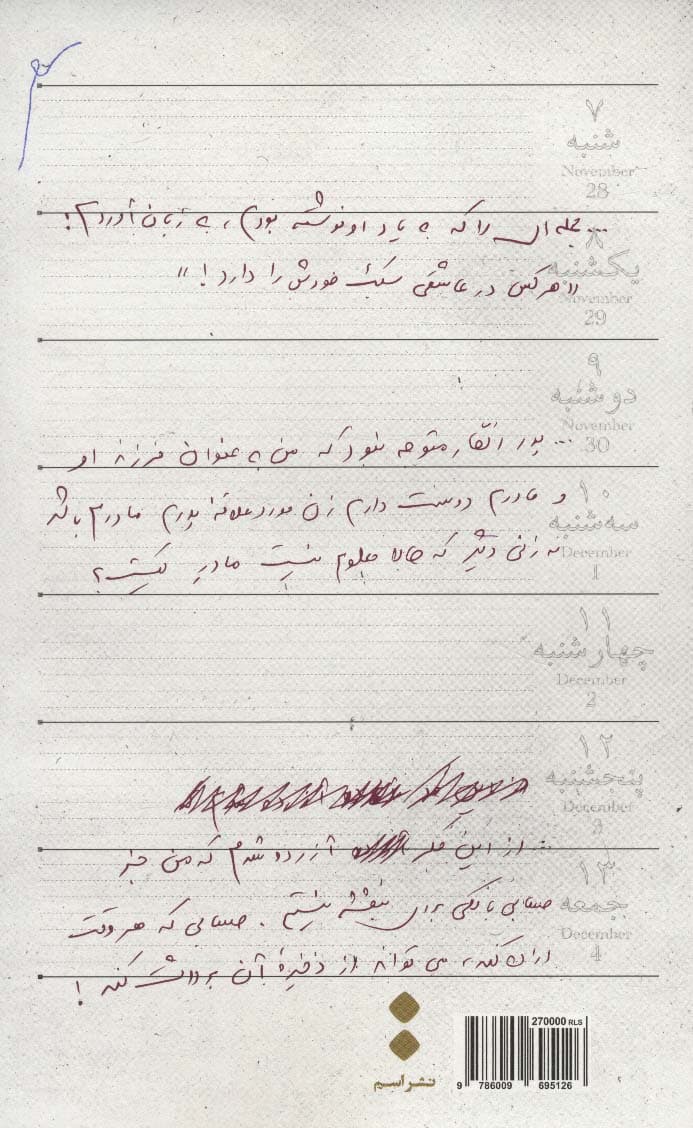 ۷
شنبه
November
28
... جمله‌ای را که به یاد او نوشته بودم، به زبان آوردم:
۸
یکشنبه
November
29
«هرکس در عاشقی سبک خودش را دارد!»
۹
دوشنبه
November
30
... پدر انگار متوجه نبود که من به عنوان فرزند او
۱۰
سه‌شنبه
December
1
و مادرم دوست دارم زن مورد علاقهٔ پدرم مادرم باشد
نه زنی دیگر که حالا معلوم نیست مادر کیست؟
۱۱
چهارشنبه
December
2
۱۲
پنجشنبه
December
3
... از این فکر آزرده شدم که من جز
۱۳
جمعه
December
4
حسابی بانکی برای بنفشه نیستم. حسابی که هر وقت
اراده کند، می تواند از ذخیرهٔ آن برداشت کند!
نشر اسم
270000 RLS
9 786009 695126